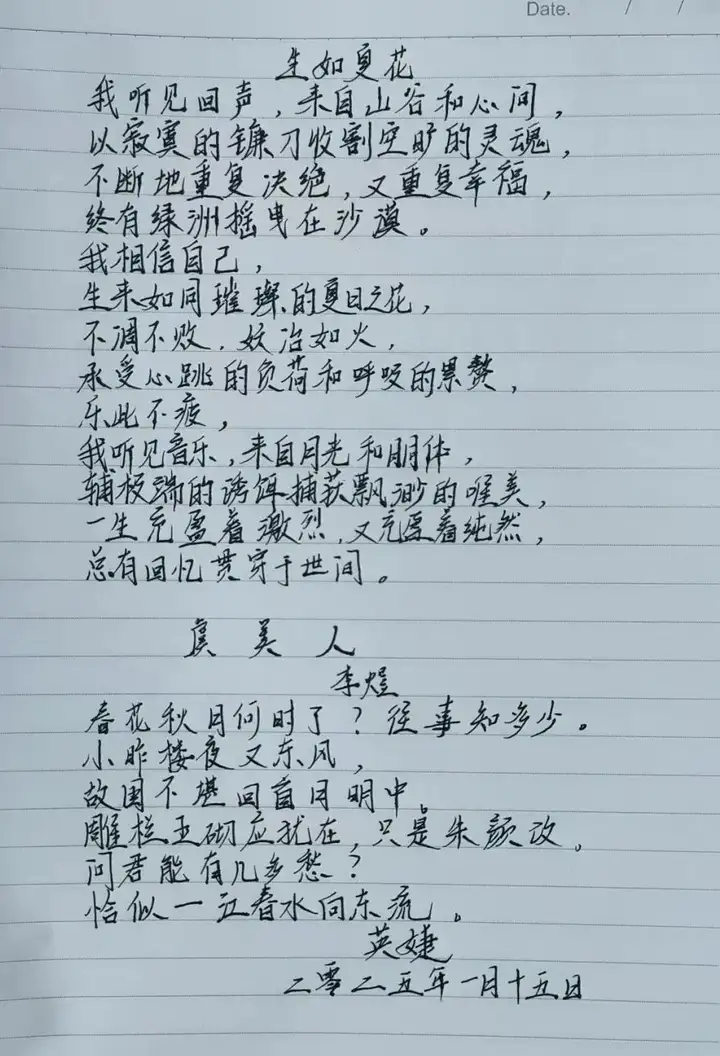 Date. / /
生如夏花
我听见回声，来自山谷和心间，
以寂寞的镰刀收割空旷的灵魂，
不断地重复决绝，又重复幸福，
终有绿洲摇曳在沙漠。
我相信自己，
生来如同璀璨的夏日之花，
不凋不败，妖冶如火，
承受心跳的负荷和呼吸的累赘，
乐此不疲，
我听见音乐，来自月光和胴体，
辅极端的诱饵捕获飘渺的唯美，
一生充盈着激烈，又充盈着纯然，
总有回忆贯穿于世间。
虞美人
李煜
春花秋月何时了？往事知多少。
小昨楼夜又东风，
故国不堪回首月明中。
雕栏玉砌应犹在，只是朱颜改。
问君能有几多愁？
恰似一江春水向东流。
英婕
二零二五年一月十五日